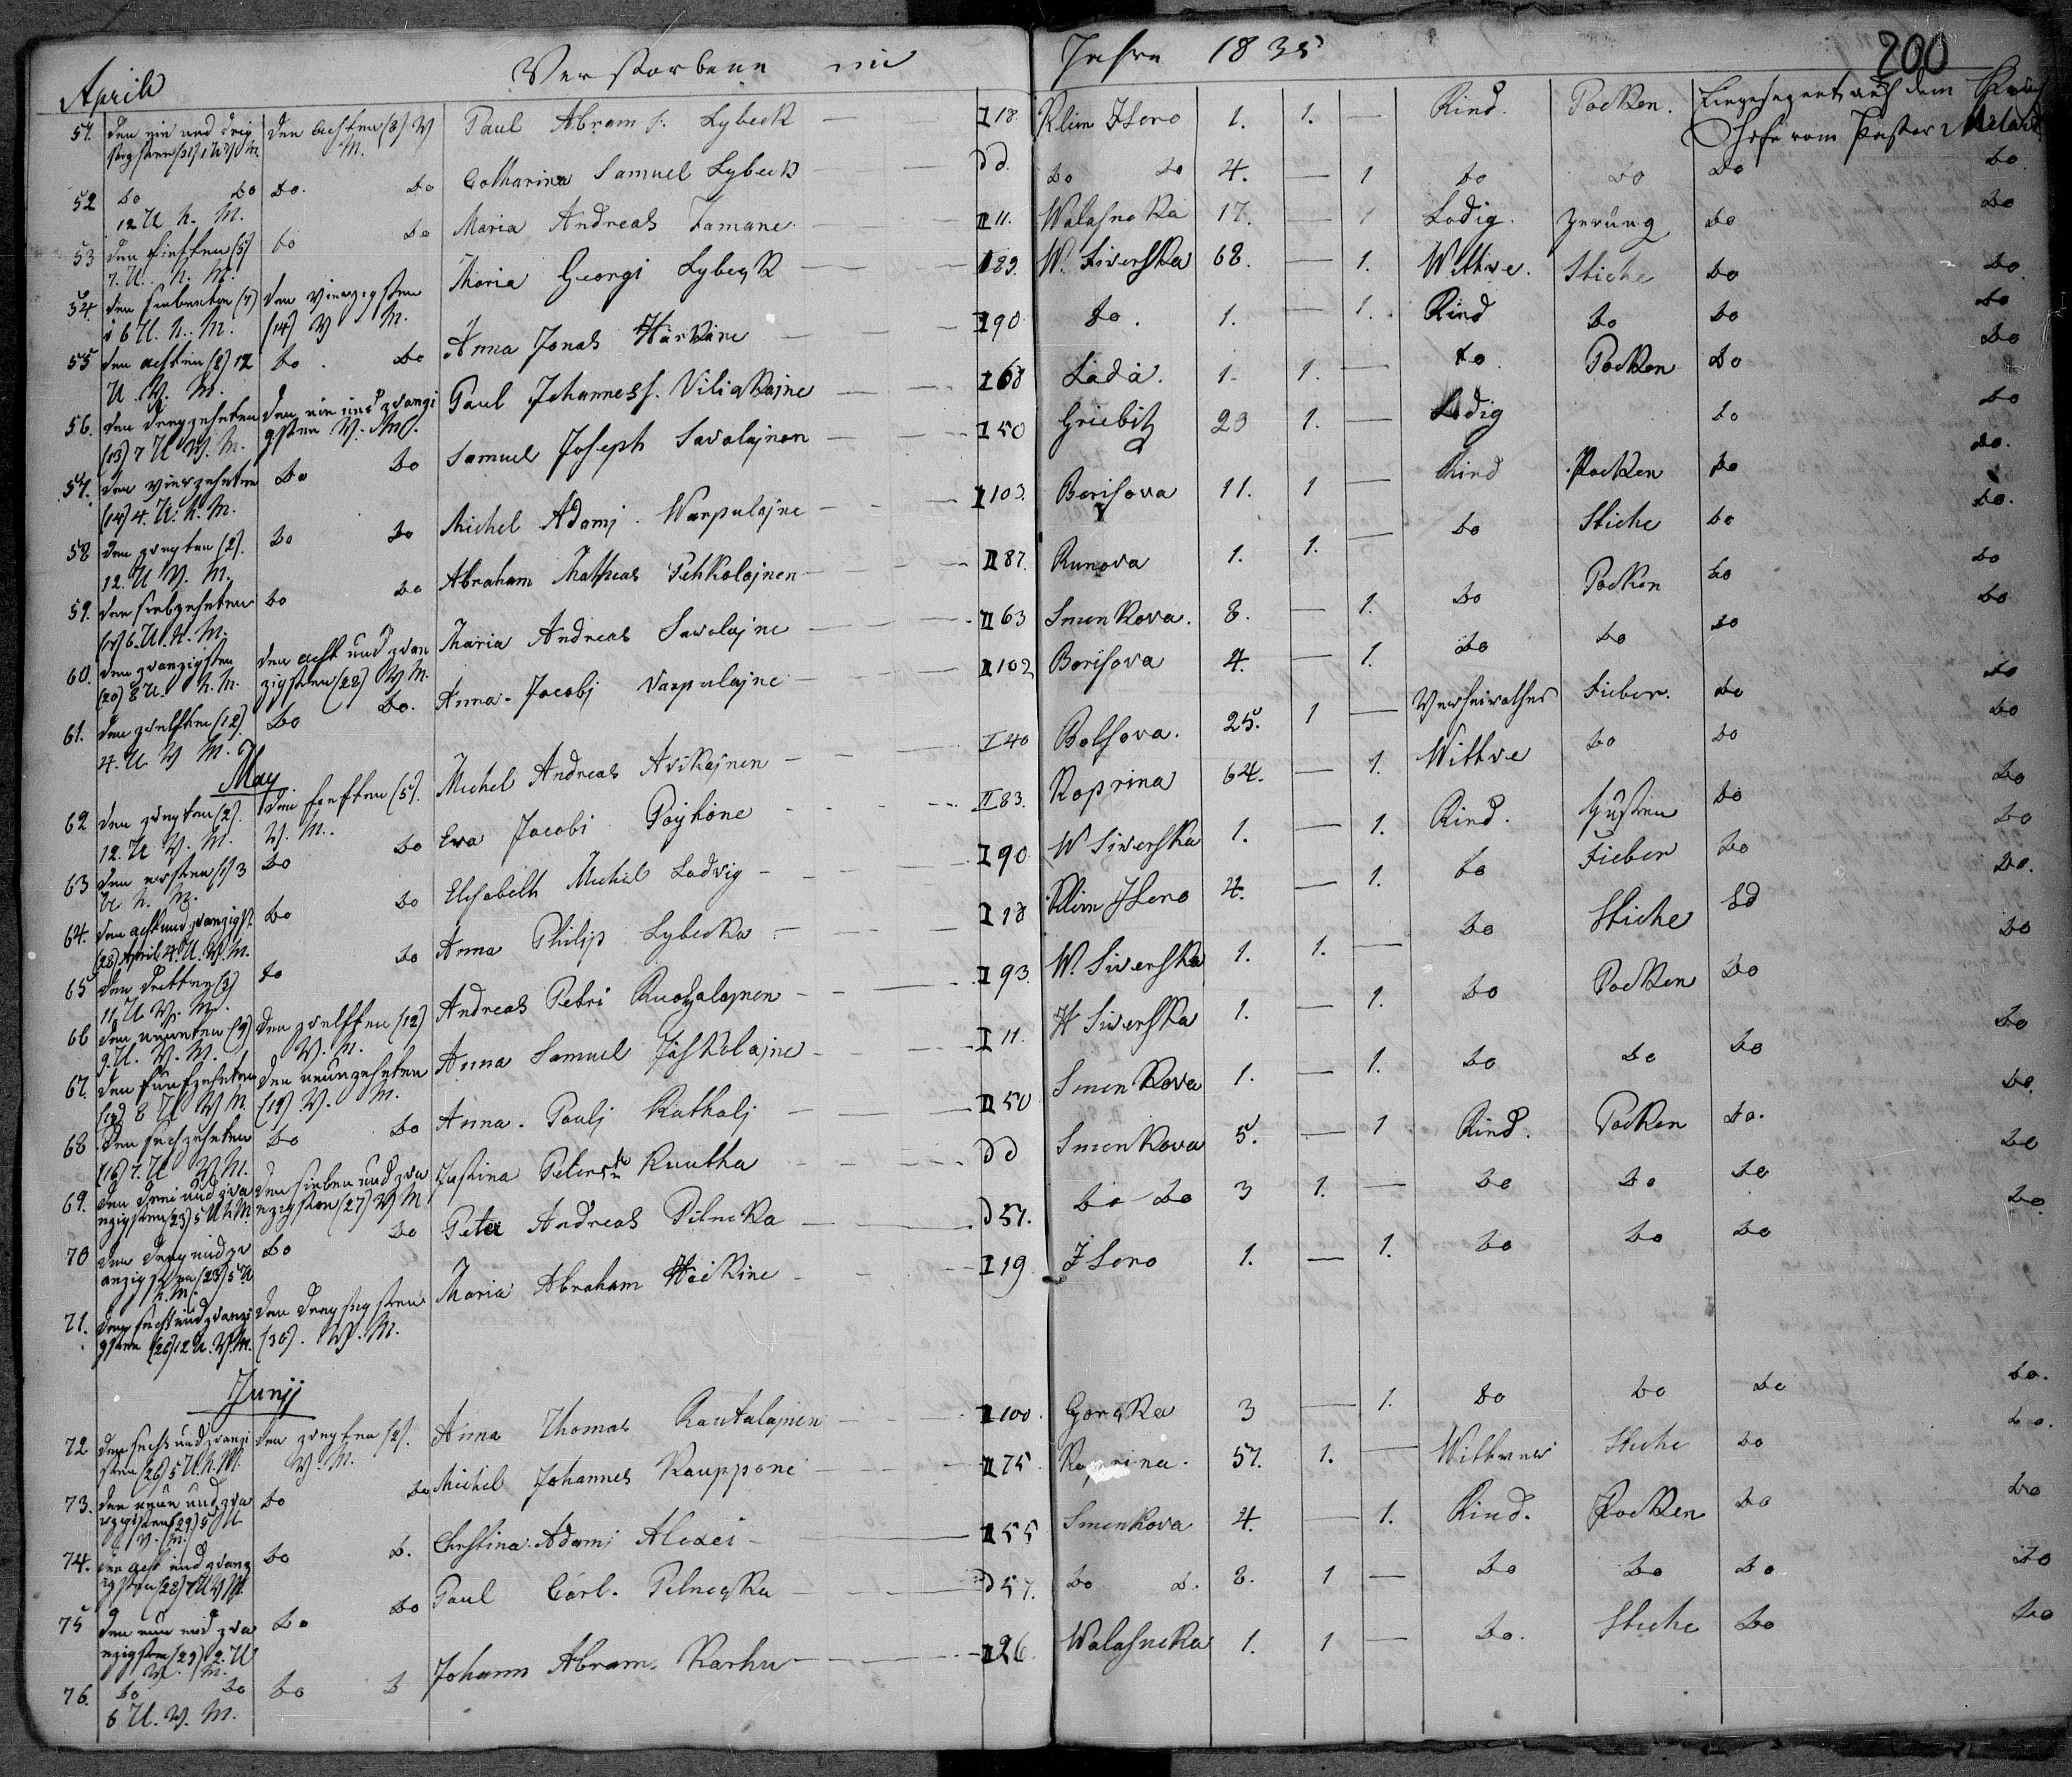 Verstorbene im Jahre 1835
200
April
51. den ein und dreißigsten (31) 12 U. V. M. den achten (8) V. M. Paul Abram s. Lybeck I 18 Klim Isero 1. 1. — Kind. Pocken. Eingesegnet auf dem Kirchhofe vom Pastor
52 do do 12 U. N. M. do. do Catharina Samuel Lybeck dd. do do 4. — 1 do do do do
53 den fünften (5) 7. U. N. M. do do Maria Andreas Tamane II 11. Walasnoka 17. — 1 Ledig. Zerung do do
54. den siebenten (7) 6 U. N. M. den vierzigsten (14) V. M. Maria Georgi Lybeck I 89. W. Siverska 68. — 1. Wittwe. Stiche do do
55 den achten (8) 12 U. V. M. do. do Anna Jonas Härkäne I 90 do. 1. — 1. Kind do do do
56. den dreyzehnten (13) 7 U. V. M. den ein und zwanzigsten V. M. Paul Johannes s. Viliakajne I 68 Lada. 1. 1. — do. Pocken do do
57. den vierzehnten (14) 4. U. N. M. do do Samuel Joseph Savolajnen I 50 Griebitz 23 1. — Ledig do do
58 den zweyten (2). 12. U. V. M. do do Michel Adamj Warpulajne I 103. Borisova 11. 1 — Kind Pocken do do.
59. den siebzehnten (17) 6. U. N. M. do do Abraham Matheas Pehkolajnen II 87. Runova 1. 1. — do Stiche do do.
60. den zwanzigsten (20) 8 U. N. M. den acht und zwanzigsten (28) V. M. Maria Andreas Savolajne II 63 Smenkova. 8. — 1. do Pocken do do
61. den zwelften (12) 4. U. V. M. do do. Anna Jacobj Varpulajne II 102 Borisova 4. — 1. do do do do
May
62 den zweyten (2). 12. U. V. M. den fünften (5). V. M. Michel Andreas Avikajnen I 40 Bolsova. 25. 1 — Verheirathet Fieber. do do
63 den ersten (1) 3 U. N. M. do do Eva Jacobi Pöyhöne II 83. Koprina 64. — 1. Wittwe do do do
64. den acht und zwanzigst. (28) April 4. U. V. M. do do Elisabeth Michel Ladvig I 90 W Siverska 1. — 1. Kind. Husten do do
65 den dritten (3) 11. U. V. M. do do Anna Philip Lybecka I 18 Klim Isero 4. — 1. do Fieber do do
66 den neunten (9) 9. U. V. M. den zwelften (12) V. M. Andreas Petri Ruotzalajnen I 93. W. Siverska 1. 1. — do Stiche do do.
67. den fünfzehnten (15) 8 U. V. M. den neunzehnten (19) V. M. Anna Samuel Jäskelajne I 11. W Siverska 1. — 1. do Pocken do do
68. den sechzehnten (16) 7. U. V. M. do do Anna. Paulj Kathalj II 50 Smenkova 1. — 1. do do do do
69. den drei und zwanzigsten (23) 5 U. N. M. den sieben und zwanzigsten (27) V. M. Justina Peters Kuutha dd Smenkova 5. — 1 Kind. Pocken do. do.
70 den drey und zwanzigsten (23) 5 U. N. M. do do Peter Andreas Pilneka d 57. do do 3 1. — do do do do
71. den sechs und zwanzigsten (26) 12 U. V. M. den dreysigsten (30). V. M. Maria Abraham Häikine I 19 Isero 1. — 1. do do do do.
Junij
72 den sechs und zwanzigsten (26) 5 U. N. M. den zweyten (2). V. M. Anna Thomas Rautalajnen II 100. Goroka 3 — 1. do do do do.
73. den neun und zwanzigsten (29) 5 U. V. M. do do Michel Johannes Kauppone II 75. Koprina. 57. 1. — Wittwer Stiche do do.
74. den acht und zwanzigsten (28) 7 U. V. M. do d. Christina Adami Alexei II 55 Smenkova 4. — 1. Kind. Pocken do do
75 den neun und zwanzigsten (29) 2. U. V. M. do do Paul Carl. Pelneska d 57. do d. 8. 1 — do do do do
76. do do 6 U. V. M. do d Johann Abram. Karhu II 26. Walasneka 1. 1 — do. Stiche do do